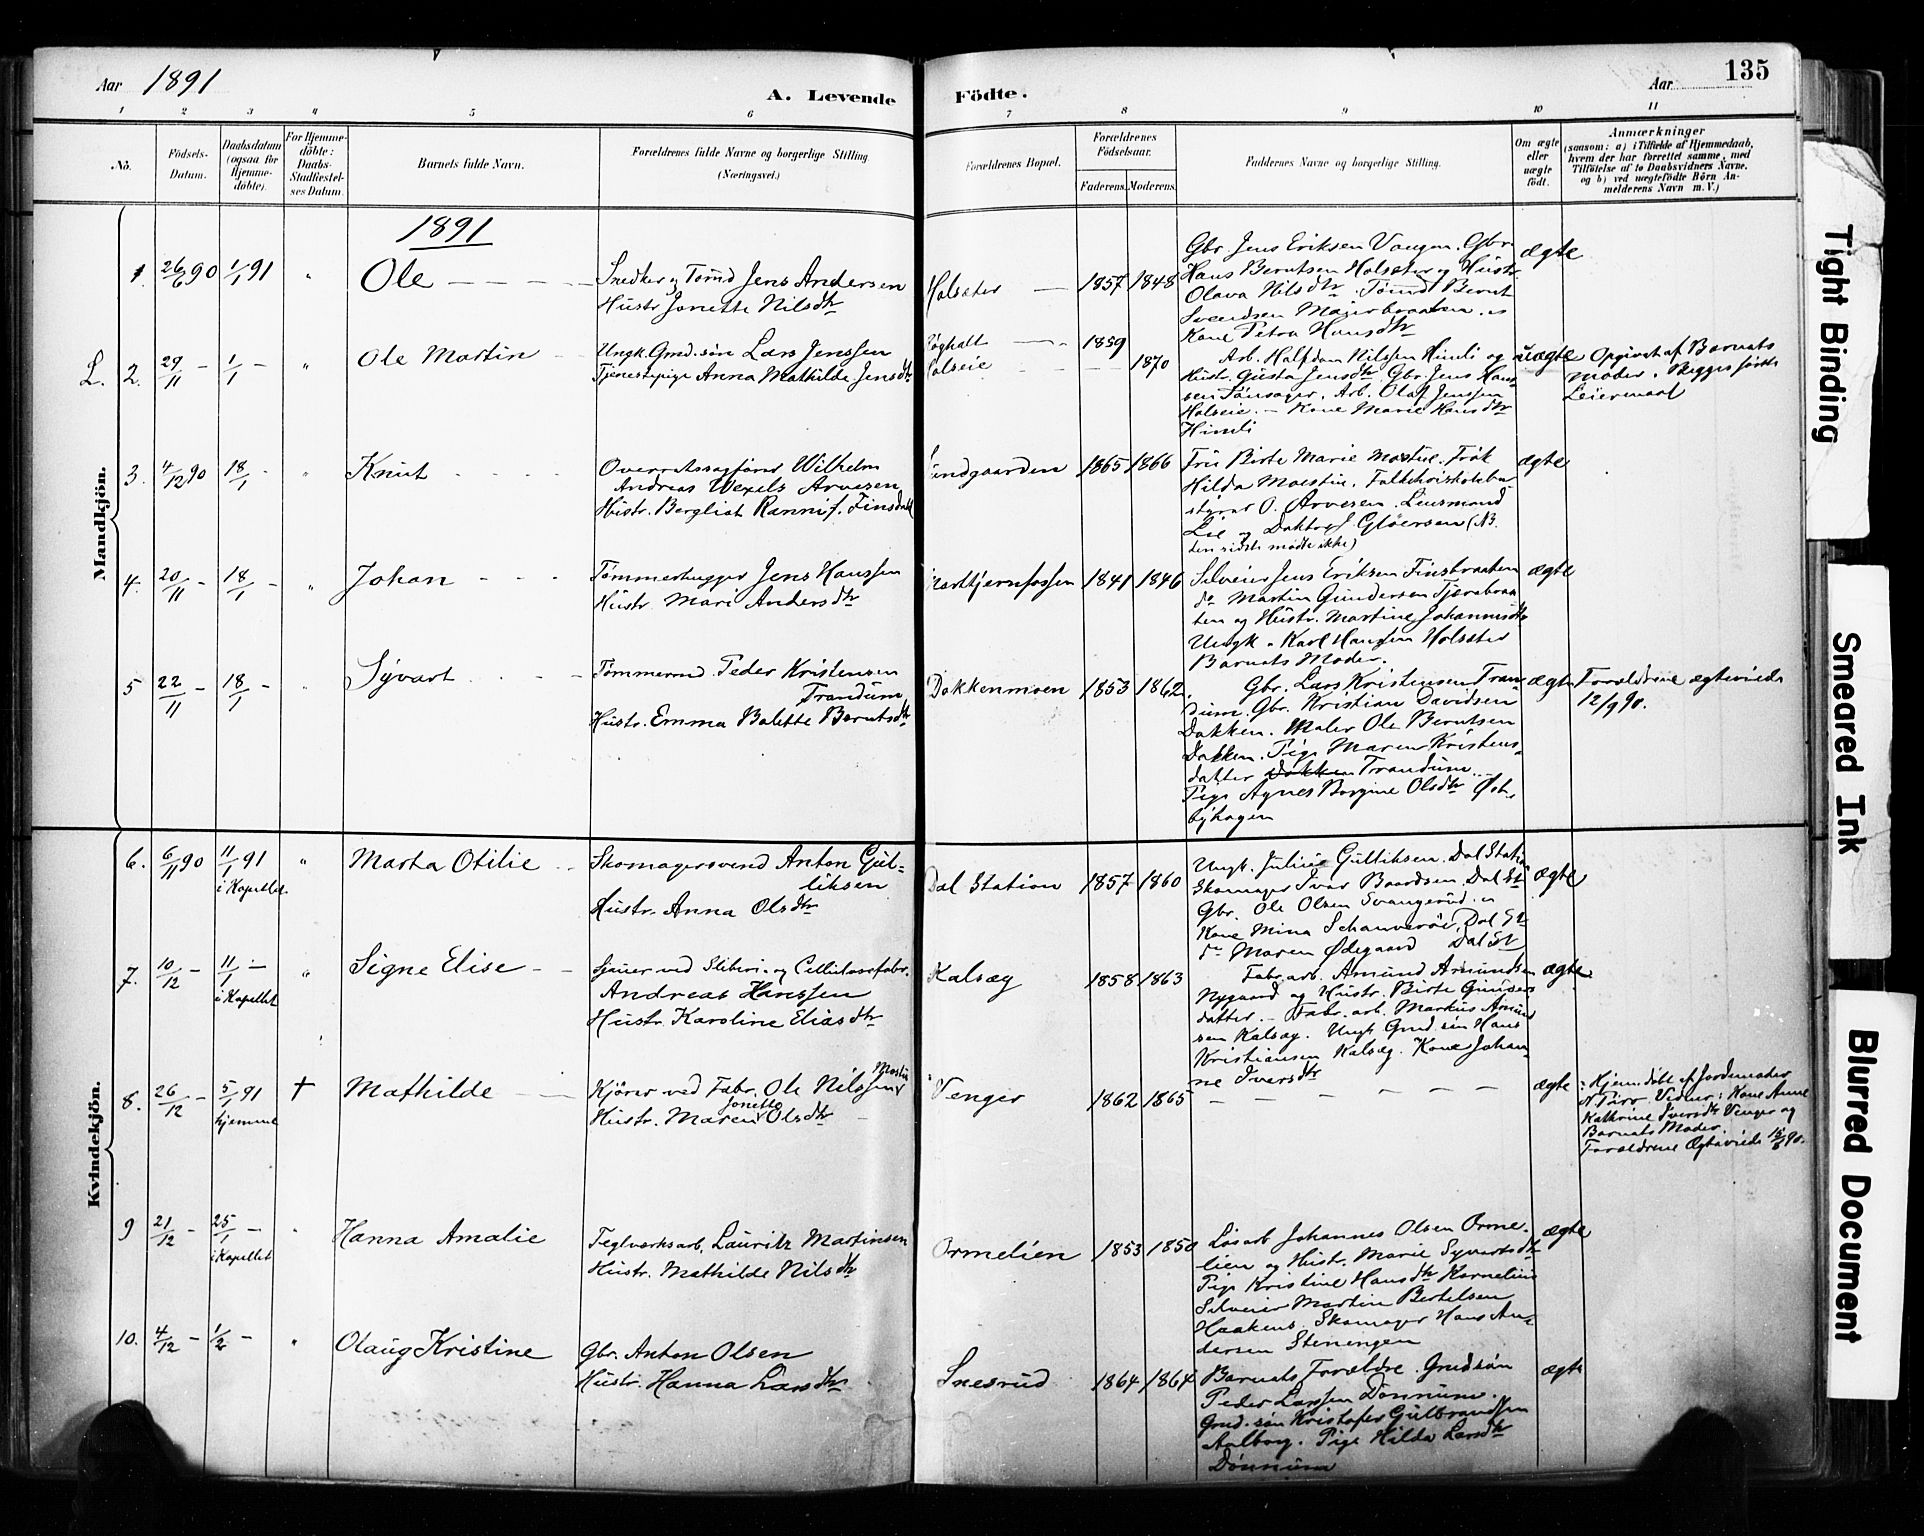 Aar 1891
A. Levende Födte.
Aar
135
1 2 3 4 5 6 7 8 9 10 11
No.
Födsels-Datum.
Daabsdatum (ogsaa for Hjemmedöbte).
For Hjemmedöbte: Daabs-Stadfæstelses Datum.
Barnets fulde Navn.
Forældrenes fulde Navne og borgerlige Stilling (Næringsvei.)
Forældrenes Bopæl.
Forældrenes Födselsaar.
Faderens. Moderens.
Faddernes Navne og borgerlige Stilling.
Om ægte eller uægte födt.
Anmærkninger
(saasom: a) i Tilfælde af Hjemmedaab, hvem der har forrettet samme, med Tilföielse af to Daabsvidners Navne, og b) ved uægtefödte Börn Anmelderens Navn m. V.)
Mandkjön.
1891
1. 26/6 90 1/1 91 " Ole
Snedker og Tømd Jens Andersen
Hustr Jonette Nilsdtr
Holsæter 1857 1848
Gbr. Jens Eriksen Vangen. Gbr.
Hans Berntsen Holsæter og Hustr.
Olava Nilsdtr. Tømd Bernt
Svendsen
Kone Petra Hansdtr
ægte
L. 2. 29/11 - 1/1 - " Ole Martin
Ungk. Grnd. søn Lars Jenssen
Tjenestepige Anna Mathilde Jensdtr
1859
1870
Arb. Halfdan Nilsen Himli og
Hustr. Gusta Jensdtr. Gbr Jens Han-
sen Tønsager. Arb. Olaf Jenssen
Holseie. - Kone Marie Hansdtr
Himli
uægte
Opgivet af Barnets
Moder. Begges første
Leiermaal
3. 4/12 90 18/1 - " Knut
Overretssagfører Wilhelm
Andreas Wexels Arvesen
Hustr. Bergliot Rannif.
1865 1866
Fru Birte Marie Moestue. Frøk
Hilda Moestue. Folkehøiskolebe-
styrer O. Arvesen. Lensmand
Lie og Doktor J. Gløersen (NB.
den sidste mødte ikke)
ægte
4. 20/11 - 18/1 - " Johan
Tømmerhugger Jens Hanssen
Hustr. Mari Andersdtr
1841 1846
Selveier Jens Eriksen Finstraaten
do Martin Gundersen Tjærebraa-
ten og Hustr. Martine Johannesdtr
Ungk. Karl Hansen Holsæter
Barnets Moder.
ægte
5 22/11 - 18/1 - " Syvert
Tømmermd Peder Kristensen
Trandum
Hustr. Emma Bolette Berntsdtr
Dokkenmoen 1853 1862
Gbr. Lars Kristensen Tran-
dum. Gbr. Kristian Davidsen
Dokken. Maler Ole Berntsen
Dokken. Pige Maren Kristens-
datter Dokken Trandum.
Pige Agnes Borgine Olsdtr Øst-
byhagen
ægte
Forældrene ægteviede
12/9 90.
Kvindekjön.
6. 6/11 90 11/1 91 i Kapellet " Marta Otilie
Skomagersvend Anton Gul-
liksen
Hustr. Anna Olsdtr
Dal Station 1857 1860
Ungk. Julius Gulliksen. Dal Station
Skomager Ivar Baardsen. Dal St
Gbr. Ole Olsen Svangerud. og
Kone Mina Dal St
do Maren Ødegaard Dal St
ægte
7. 10/12 - 11/1 - i Kapellet " Signe Elise
Sjauer ved Sliberi- og Cellulosefabr.
Andreas Hanssen
Hustr. Karoline Eliasdtr
Kalsæg 1858 1863
Fabr. arb. Amund Amundsen
Nygaard og Hustr. Birte Gunders
datter. - Fabr. arb. Markus Amund
sen Kalsæg. Ungk Grnd. søn Hans
Kristiansen Kalsæg. Kone Johan-
ne Iversdtr
ægte
8. 26/12 - 5/1 91 hjemme † Mathilde
Kjører ved Fabr. Ole Martin Nilssen
Hustr. Maren Jonette Olsdtr
Venger 1862 1865
ægte
Hjemdøbt af Jordemoder
N. Vidner: Kone Anne
Kathrine Iversdtr Venger og
Barnets Moder.
Forældrene Ægteviede 90.
9 21/12 - 25/1 - i Kapellet " Hanna Amalie
Teglverksarb. Lauritz Martinsen
Hustr. Mathilde Nilsdtr
Ormelien 1853 1850
Løsarb Johannes Olsen Orme-
lien og Hustr. Marie Syvertsdtr
Pige Kristine Hansdtr
Selveier Martin Bertelsen
Haakens. Skomager Hans An-
dersen Steningen
ægte
10. 4/12 - 1/2 - " Olaug Kristine
Gbr. Anton Olsen
Hustr. Hanna Larsdtr
Snesrud 1864 1864
Barnets Forældre. Grndsøn
Peder Larssen Dønnum.
Grnd. søn Kristofer Gulbrandsen
Aalborg. Pige Hilda Larsdtr
Dønnum
ægte
Tight Binding
Smeared Ink
Blurred Document